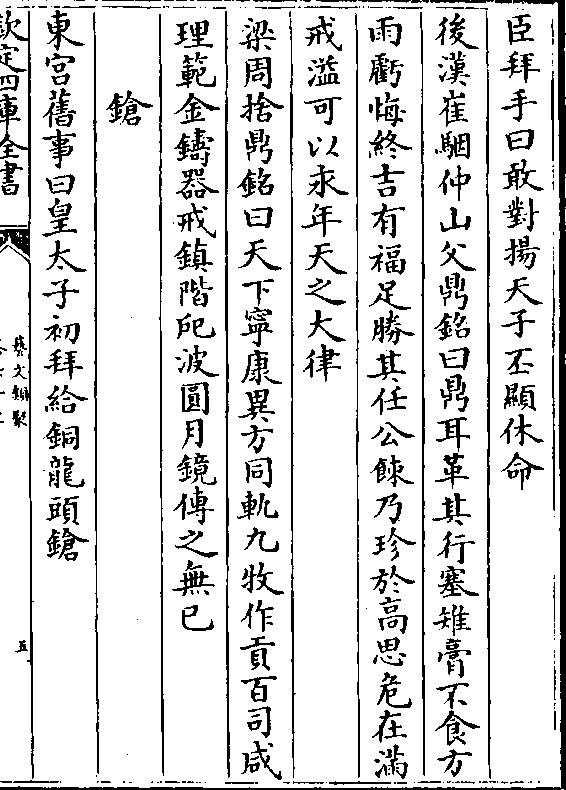 臣拜手曰敢對揚天子丕顯休命
後漢崔駰仲山父鼎銘曰鼎耳革其行塞雉膏不食方
雨虧悔終吉有福足勝其任公餗乃珍於高思危在滿
戒溢可以永年天之大律
梁周捨鼎銘曰天下寧康異方同軌九牧作貢百司咸
理範金鑄器戒鎮階戺波圓月鏡傳之無已
鎗
東宮舊事曰皇太子初拜給銅龍頭鎗
欽定四庫全書
藝文類聚
五